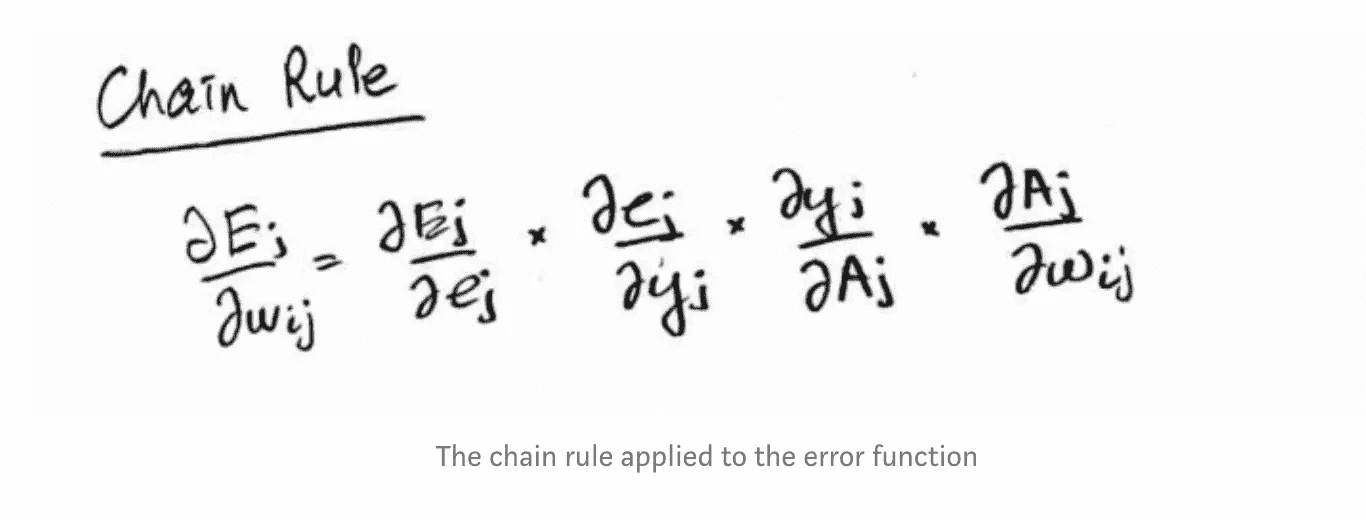 Chain Rule
∂Ej/∂wij = ∂Ej/∂ej * ∂ej/∂yj * ∂yj/∂Aj * ∂Aj/∂wij
The chain rule applied to the error function